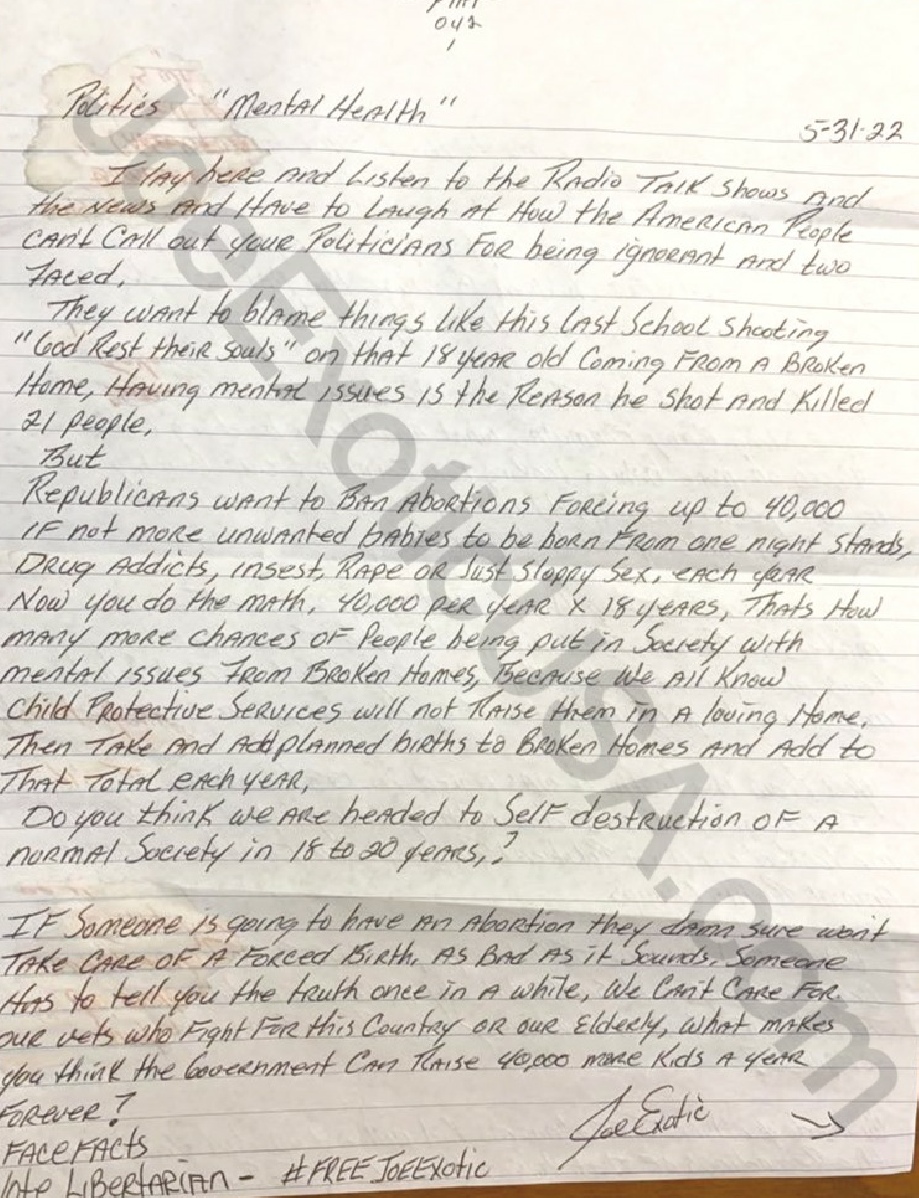 042
1
Politics "Mental Health"
5-31-22
I lay here and Listen to the Radio Talk shows and
the News and Have to Laugh at How the American People
can't Call out your Politicians For being ignorant and two
Faced.
They want to blame things like this last School shooting
"God Rest their souls" on that 18 year old Coming From a Broken
Home, Having mental issues is the Reason he shot and Killed
21 people,
But
Republicans want to Ban Abortions Forcing up to 40,000
if not more unwanted babies to be born From one night stands,
Drug Addicts, insest, Rape or Just sloppy sex, each year
Now you do the math, 40,000 per year x 18 years, Thats How
many more chances of People being put in Society with
mental issues From Broken Homes, Because We All Know
Child Protective Services will not Raise them in a loving Home,
Then Take and Add planned births to Broken Homes and Add to
That Total each year,
Do you think we are headed to Self destruction of a
normal Society in 18 to 20 years,?
IF Someone is going to have an Abortion they damn sure won't
Take Care of a Forced Birth, As Bad As it Sounds, Someone
Has to tell you the truth once in a while, We Can't Care For
our vets who Fight For this Country or our Elderly, what makes
you think the Government Can Raise 40,000 more Kids a year
Forever?
Joe Exotic
FACE FACTS
LIBERTARIAN - #FREEJOEEXOTIC
JoeExoticUSA.com